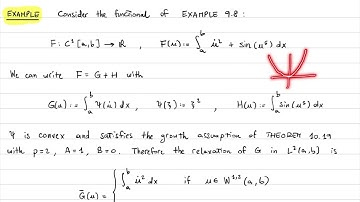 EXAMPLE Consider the functional of EXAMPLE 9.8:
F: C¹[a,b] → ℝ , F(u) := ∫ₐᵇ u̇² + sin(u⁵) dx
We can write F = G + H with
G(u) := ∫ₐᵇ Ψ(u̇) dx , Ψ(ξ) = ξ² , H(u) := ∫ₐᵇ sin(u⁵) dx
Ψ is convex and satisfies the growth assumption of THEOREM 10.19
with p=2, A=1, B=0. Therefore the relaxation of G in L²(a,b) is
G̅(u) = { ∫ₐᵇ u̇² dx if u ∈ W¹,²(a,b)